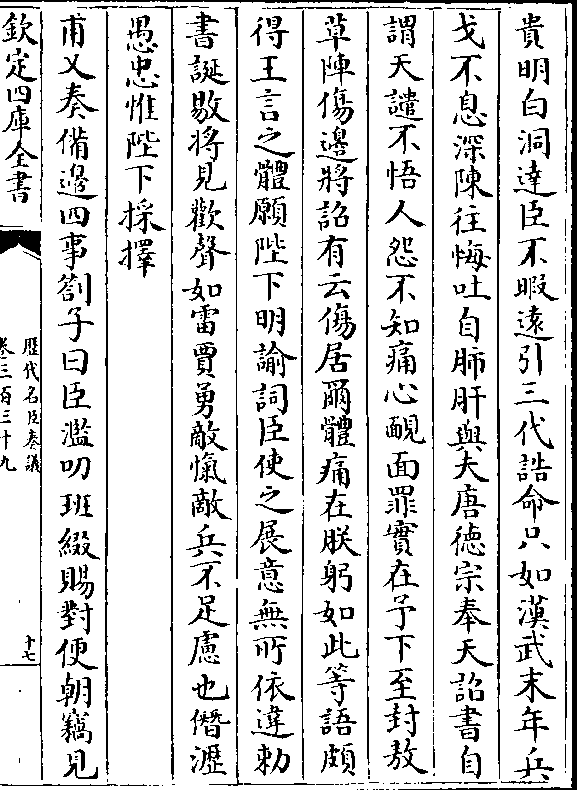 貴明白洞達臣不暇遠引三代誥命只如漢武末年兵
戈不息深陳往悔吐自肺肝與夫唐德宗奉天詔書自
謂天譴不悟人怨不知痛心靦面罪實在予下至封敖
草陣傷邊將詔有云傷居爾體痛在朕躬如此等語頗
得王言之體願陛下明諭詞臣使之展意無所依違勅
書誕敭將見歡聲如雷賈勇敵愾敵兵不足慮也僭瀝
愚忠惟陛下採擇
甫又奏備邊四事劄子曰臣濫叨班綴賜對便朝竊見
欽定四庫全書
歷代名臣奏議
卷三百三十九
十七